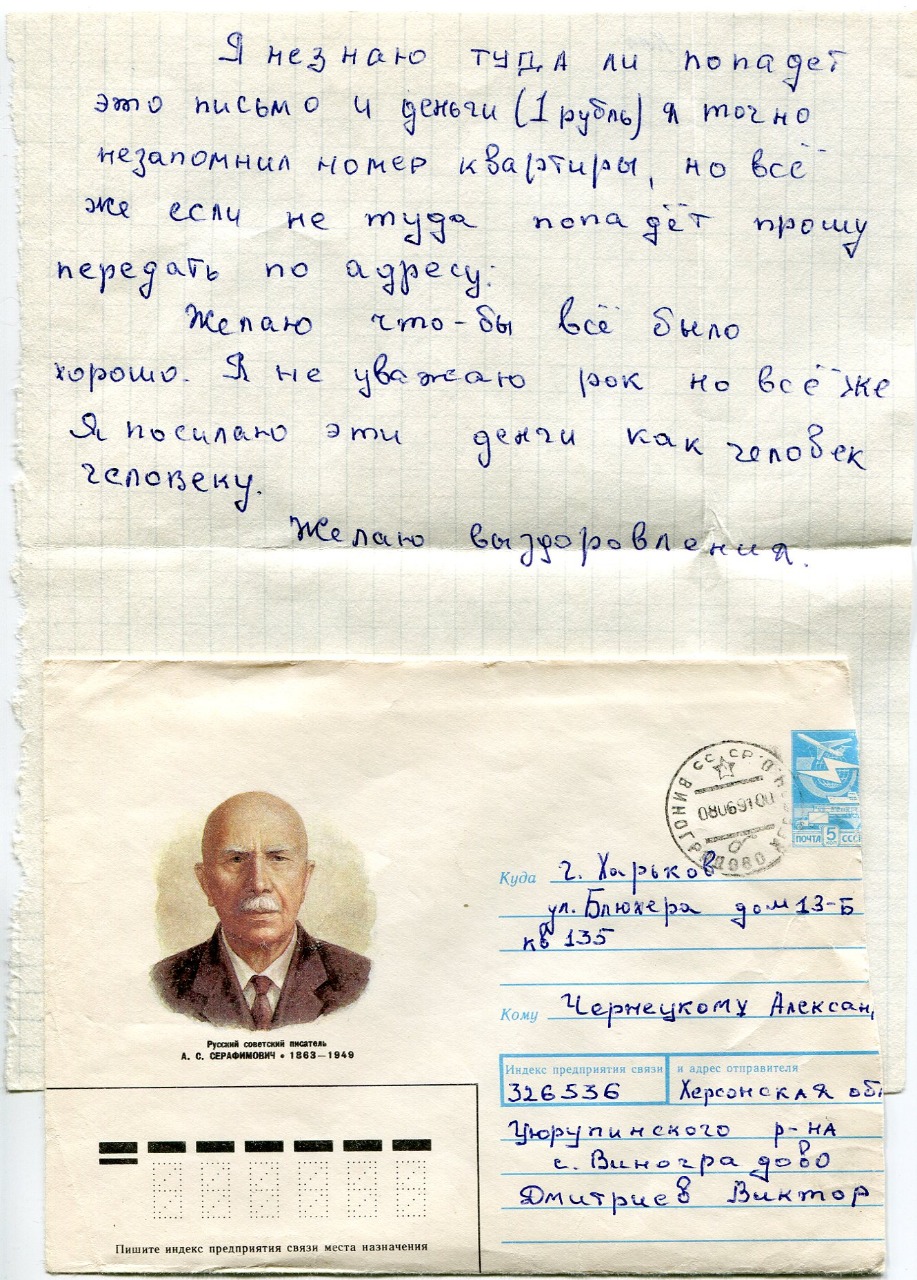 Я незнаю туда ли попадет
это письмо и деньги (1 рубль) я точно
незапомнил номер квартиры, но всё
же если не туда попадёт прошу
передать по адресу:
Желаю что-бы всё было
хорошо. Я не уважаю рок но всё же
Я посилаю эти денги как человек
человеку.
Желаю выздоровления.
СССР
ВИНОГРАДОВО
ПОЧТА 5 СССР
Куда г. Харьков
ул. Блюхера дом 13-Б
кв 135
Кому Чернецкому Алексан
Русский советский писатель
А. С. СЕРАФИМОВИЧ • 1863—1949
Индекс предприятия связи и адрес отправителя
326536 Херсонская об
Цюрупинского р-на
с. Виноградово
Дмитриев Виктор
Пишите индекс предприятия связи места назначения